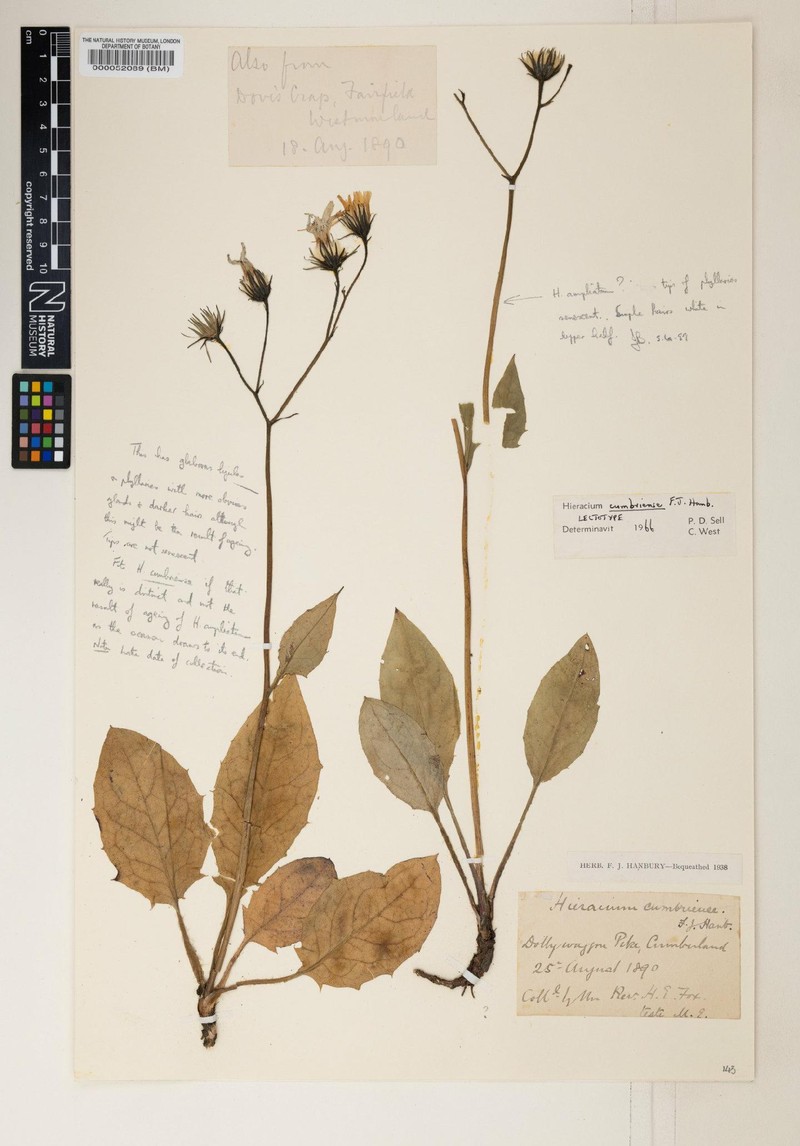 THE NATURAL HISTORY MUSEUM, LONDON
DEPARTMENT OF BOTANY
000052089 (BM)
cm
0 1 2 3 4 5 6 7 8 9 10
copyright reserved
NATURAL
HISTORY
MUSEUM
Also from
Dovis Crag, Fairfield
Westmorland
18. Aug. 1890
H. ampliatum? tips of phyllaries
senescent. Simple hairs white in
upper half.
This has glabrous ligules
phyllaries with more obvious
glands & darker hairs although
this might be the result of ageing.
Tips are not senescent.
H. cumbriense if that
really is distinct and not the
result of ageing of H. ampliatum
as the season draws to its end.
Note late date of collection.
Hieracium cumbriense F.J. Hanb.
LECTOTYPE
Determinavit 1966
P. D. Sell
C. West
HERB. F. J. HANBURY—Bequeathed 1938
Hieracium cumbriense.
F.J. Hanb.
Dollywaggon Pike, Cumberland
25 August 1890
Coll.d by the Rev. H. E. Fox.
teste
?